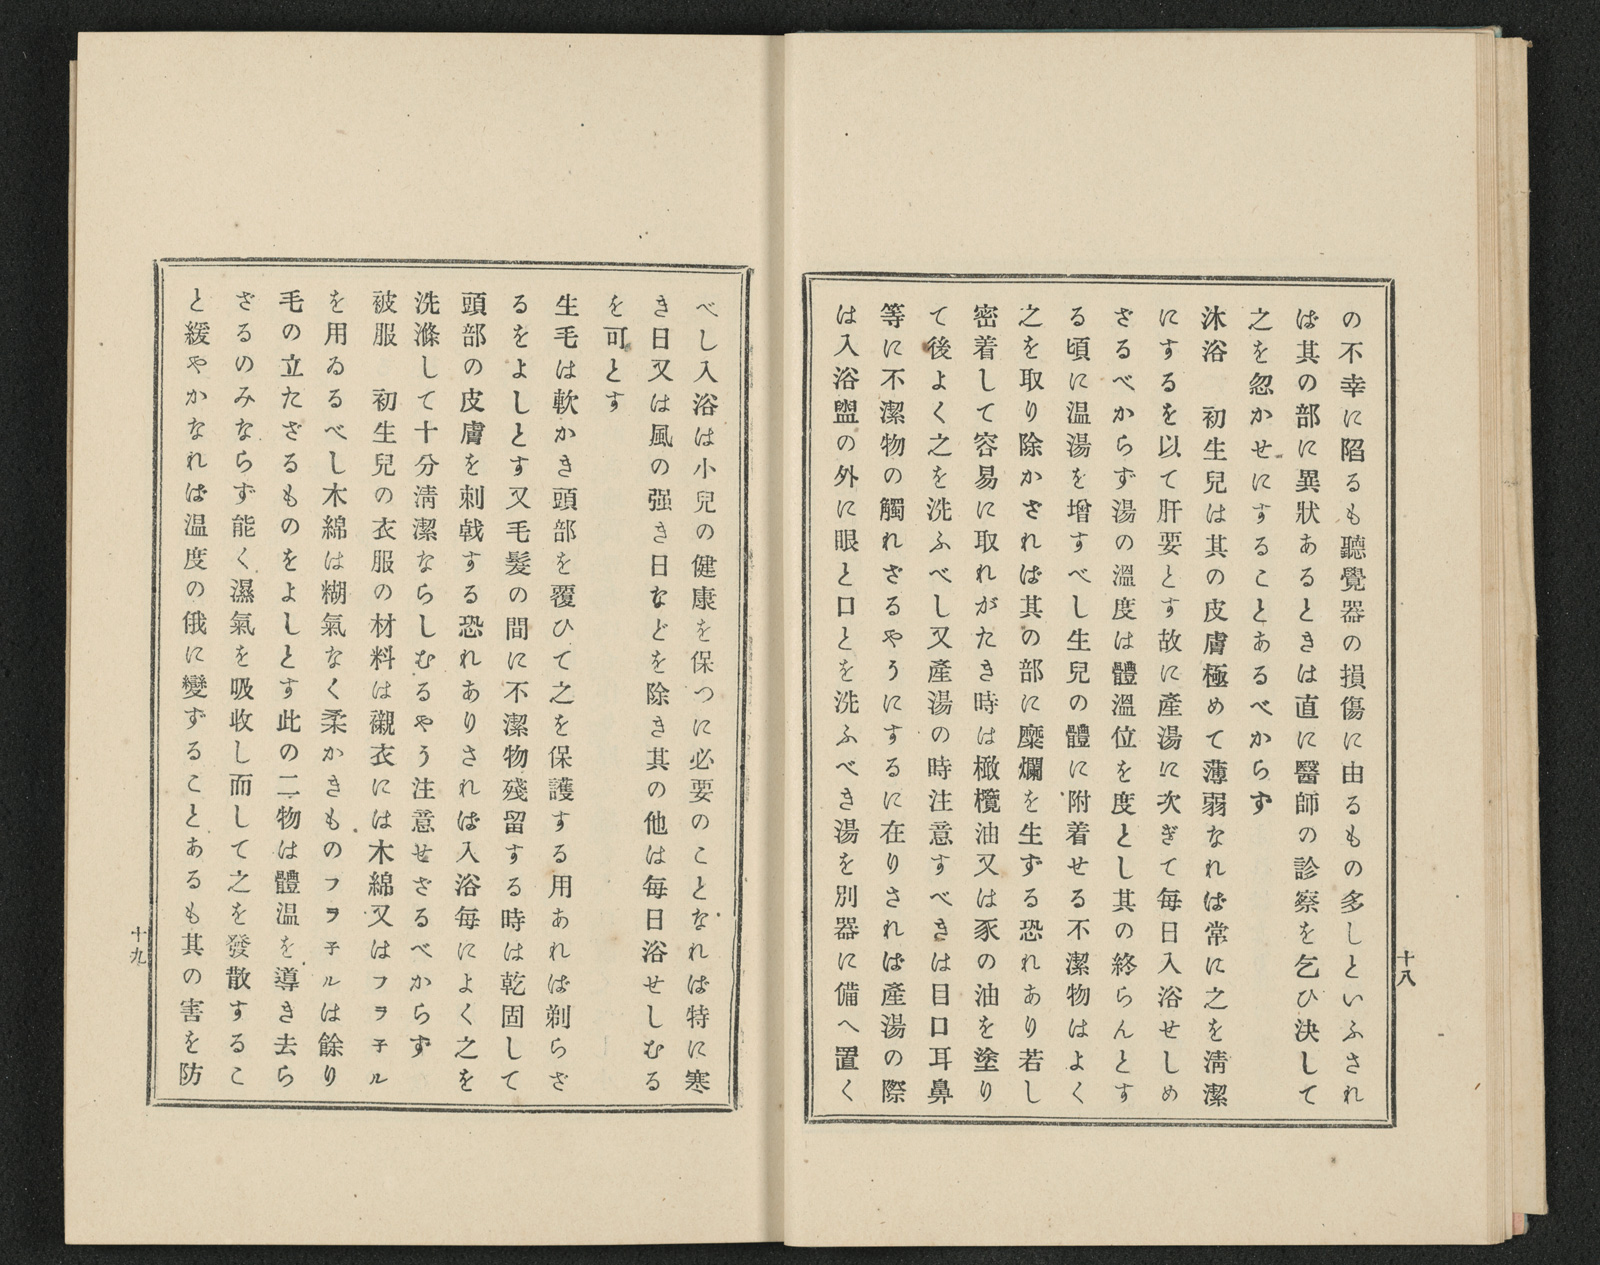 の不幸に陷るも聽覺器の損傷に由るもの多しといふされ
ば其の部に異狀あるときは直に醫師の診察を乞ひ決して
之を忽かせにすることあるべからず
沐浴　初生兒は其の皮膚極めて薄弱なれば常に之を淸潔
にするを以て肝要とす故に產湯に次ぎて每日入浴せしめ
ざるべからず湯の溫度は體溫位を度とし其の終らんとす
る頃に温湯を增すべし生兒の體に附着せる不潔物はよく
之を取り除かざれば其の部に糜爛を生ずる恐れあり若し
密着して容易に取れがたき時は橄欖油又は豕の油を塗り
て後よく之を洗ふべし又產湯の時注意すべきは目口耳鼻
等に不潔物の觸れざるやうにするに在りされば產湯の際
は入浴盥の外に眼と口とを洗ふべき湯を別器に備へ置く
十八
べし入浴は小兒の健康を保つに必要のことなれば特に寒
き日又は風の强き日などを除き其の他は每日浴せしむる
を可とす
生毛は軟かき頭部を覆ひて之を保護する用あれば剃らざ
るをよしとす又毛髮の間に不潔物殘留する時は乾固して
頭部の皮膚を刺戟する恐れありされば入浴每によく之を
洗滌して十分淸潔ならしむるやう注意せざるべからず
被服　初生兒の衣服の材料は襯衣には木綿又はフヲ子ル
を用ゐるべし木綿は糊氣なく柔かきものフヲ子ルは餘り
毛の立たざるものをよしとす此の二物は體溫を導き去ら
ざるのみならず能く濕氣を吸收し而して之を發散するこ
と緩やかなれば溫度の俄に變ずることあるも其の害を防
十九